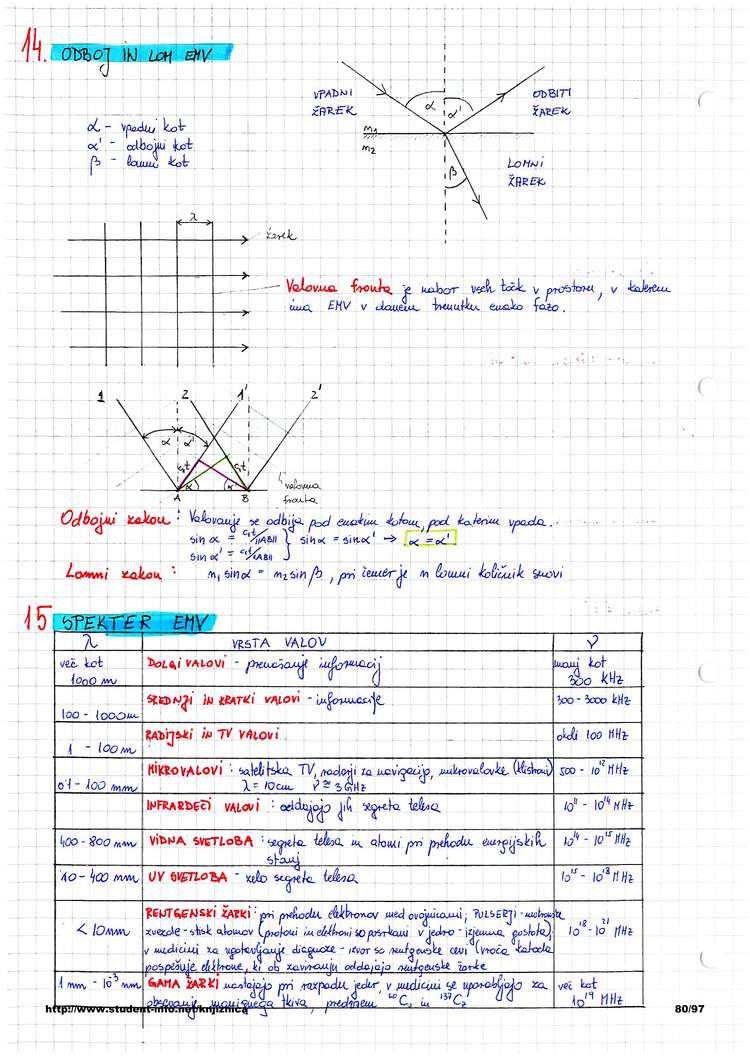 14. ODBOJ IN LOM EMV
VPADNI
ŽAREK
α
α'
ODBITI
ŽAREK
α - vpadni kot
α' - odbojni kot
β - lomni kot
n1
n2
β
LOMNI
ŽAREK
λ
žarek
Valovna fronta je nabor vseh točk v prostoru, v katerem
ima EMV v danem trenutku enako fazo.
1 2 1' 2'
α α'
c1t c1t
α α'
A B
valovna
fronta
Odbojni zakon: Valovanje se odbija pod enakim kotom, pod katerim vpada.
sin α = c1t/||AB|| } sin α = sin α' → α = α'
sin α' = c1t/||AB||
Lomni zakon: n1 sin α = n2 sin β, pri čemer je n lomni količnik snovi
15 SPEKTER EMV
λ VRSTA VALOV ν
več kot DOLGI VALOVI - prenašanje informacij manj kot
1000 m 300 kHz
SREDNJI IN KRATKI VALOVI - informacije 300 - 3000 kHz
100 - 1000m
RADIJSKI IN TV VALOVI okoli 100 MHz
1 - 100m
MIKROVALOVI: satelitska TV, radarji za navigacijo, mikrovalovke (klistroni) 500 - 10^12 MHz
0,1 - 100 mm λ = 10cm ν ≅ 3 GHz
INFRARDEČI VALOVI: oddajajo jih segreta telesa 10^11 - 10^14 MHz
400 - 800 nm VIDNA SVETLOBA: segreta telesa in atomi pri prehodu energijskih 10^14 - 10^15 MHz
stanj
10 - 400 nm UV SVETLOBA - zelo segreta telesa 10^15 - 10^18 MHz
RENTGENSKI ŽARKI: pri prehodu elektronov med ovojnicami, PULSERJI - nevtronske
< 10nm zvezde - stisk atomov (protoni in elektroni so posrkani v jedro - izjemna gostota), 10^18 - 10^21 MHz
v medicini za ugotavljanje diagnoze - izvor so rentgenske cevi (vroča katoda
pospešuje elektrone, ki ob zaviranju oddajajo rentgenske žarke
1 nm - 10^-3 nm GAMA ŽARKI nastajajo pri razpadu jeder, v medicini se uporabljajo za več kot
obsevanje tkiva, predvsem ^60C in ^137C 10^19 MHz
http://www.student-info.net/knjiznica 80/97